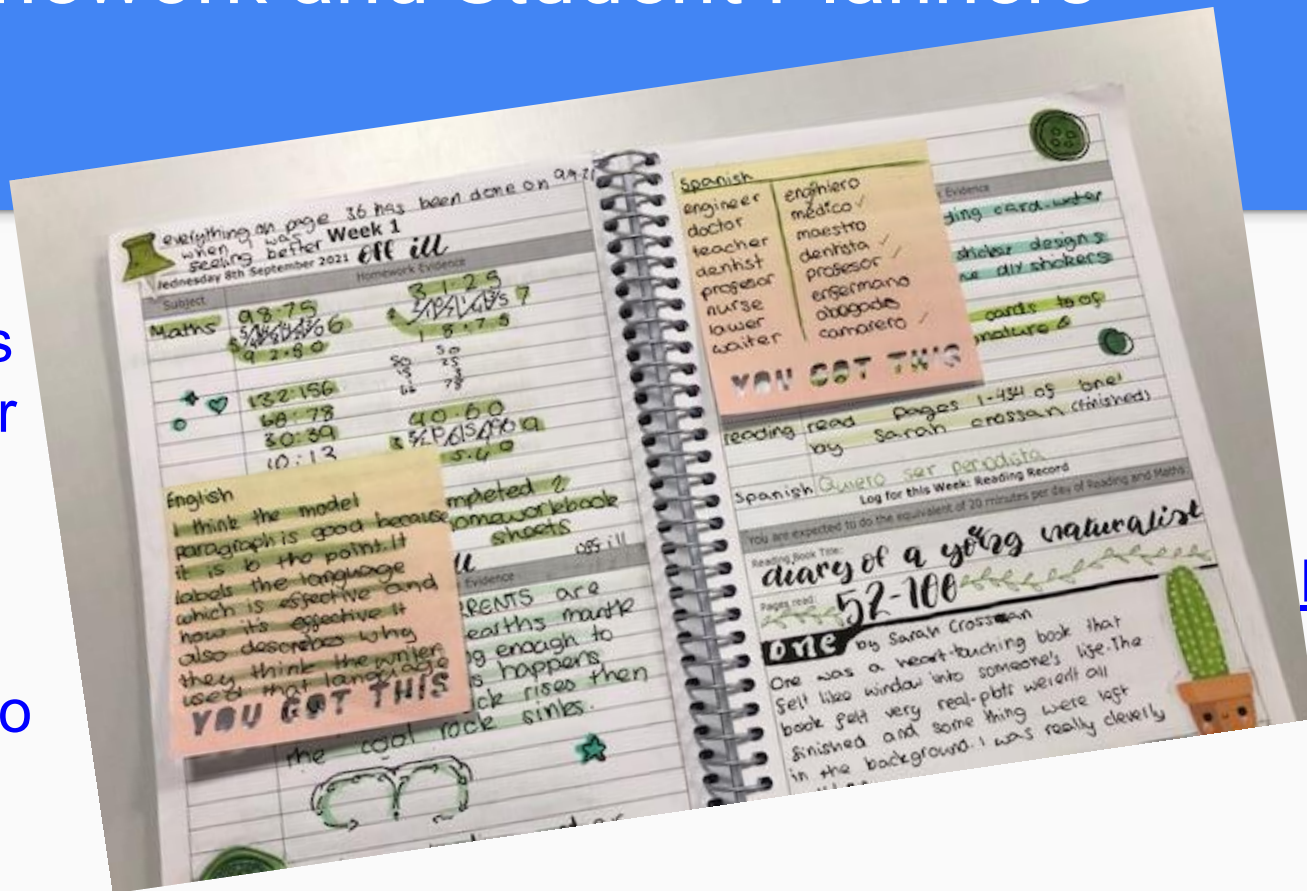 Homework and Student Planners
everything on page 36 has been done on 9.9.21
when I was
feeling better
Week 1
Wednesday 8th September 2021 off ill
Subject
Homework Evidence
Maths
98.75
6
92.50
31.25
7
18.75
132:156
68:78
30:39
10:13
40.60
9
5.40
English
I think the model
paragraph is good because
it is to the point. It
labels the language
which is effective and
how it's effective It
also describes why
they think the writer
used that language
YOU GOT THIS
completed 2
homeworkbook
sheets
off ill
Evidence
RENTS are
earths mantle
enough to
happens
rises then
the cool rock sinks.
Spanish
engineer
doctor
teacher
dentist
profesor
nurse
lawer
waiter
enginiero
médico ✓
maestro
dentista ✓
profesor ✓
enfermano
abogado
camarero ✓
YOU GOT THIS
Evidence
card
sticker designs
diy stickers
cards to
reading
read pages 1-434 of 'one'
by sarah crossan (finished)
Spanish
Quiero ser periodista
Log for this Week: Reading Record
You are expected to do the equivalent of 20 minutes per day of Reading and Maths
Reading Book Title:
diary of a young naturalist
Pages read:
52-100
one by Sarah Crossan
One was a heart-touching book that
felt like window into someone's life. The
book felt very real-plots weren't all
finished and some thing were left
in the background. I was really cleverly